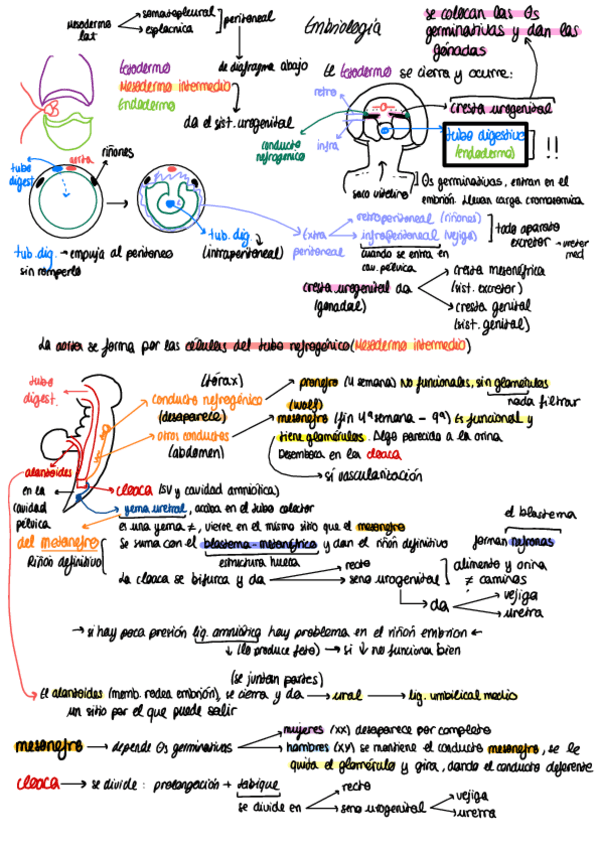 Embriología
mesodermo lat
somatopleural
esplácnica
peritoneal
se colocan las Øs
germinativas y dan las
gónadas
Ectodermo
Mesodermo intermedio
Endodermo
de diafragma abajo
da el sist. urogenital
El Ectodermo se cierra y ocurre:
retro
infra
conducto
nefrogénico
cresta urogenital
tubo digestivo
(endodermo)
!!
saco vitelino
Øs germinativas, entran en el
embrión. Llevan carga cromosómica
tubo
digest
aorta
riñones
tub. dig. → empuja al peritoneo
sin romperlo
tub. dig
(intraperitoneal)
extra
peritoneal
retroperitoneal (riñones)
infraperitoneal (vejiga)
cuando se entra en
cav. pélvica
todo aparato
excretor → ureter
med
cresta urogenital da
(gonadal)
cresta mesonéfrica
(sist. excretor)
cresta genital
(sist. genital)
La aorta se forma por las células del tubo nefrogénico (Mesodermo intermedio)
tubo
digest.
(tórax)
conducto nefrogénico
(desaparece)
otros conductos
(abdomen)
pronefro (4 semana) No funcionales, sin glomérulos
nada filtrar
(wolf)
mesonefro (fin 4ª semana - 9ª) Es funcional y
tiene glomérulos. Algo parecido a la orina
Desemboca en la cloaca
sí vascularización
alantoides
en la
cavidad
pélvica
cloaca (SV y cavidad amniótica)
yema uretral, acaba en el tubo colector
es una yema ≠, vierte en el mismo sitio que el mesonefro
del metanefro
Riñón definitivo
Se suma con el blastema-metanéfrico y dan el riñón definitivo
estructura hueca
el blastema
forman nefronas
La cloaca se bifurca y da
recto
seno urogenital
alimento y orina
≠ caminos
da
vejiga
uretra
→ si hay poca presión liq. amniótico hay problema en el riñón embrion ←
↓ (lo produce feto) → si ↓ no funciona bien
(se juntan partes)
El alantoides (memb. rodea embrión), se cierra y da → ural → lig. umbilical medio
un sitio por el que puede salir
mesonefro → depende Øs germinativas
mujeres (XX) desaparece por completo
hombres (XY) se mantiene el conducto mesonefro, se le
quita el glomérulo y gira, dando el conducto deferente
cloaca → se divide: prolongación + tabique
se divide en
recto
seno urogenital
vejiga
uretra